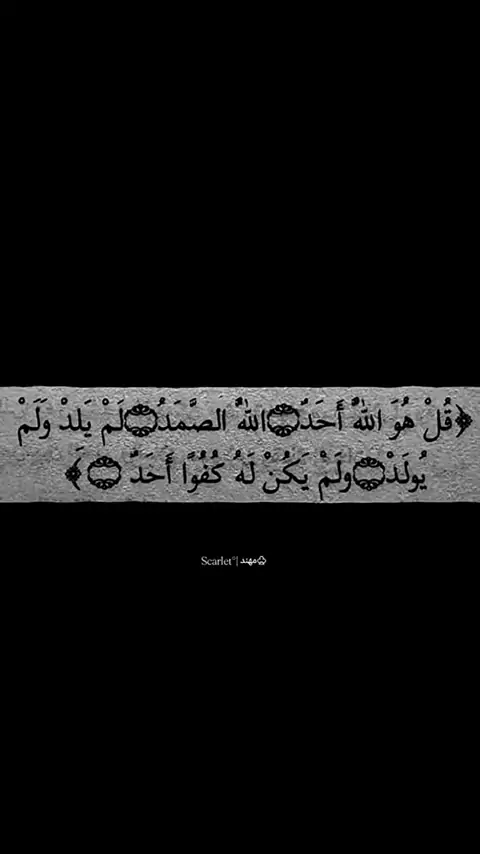 ﴿قُلْ هُوَ اللَّهُ أَحَدٌ ۝ اللَّهُ الصَّمَدُ ۝ لَمْ يَلِدْ وَلَمْ
يُولَدْ ۝ وَلَمْ يَكُنْ لَهُ كُفُوًا أَحَدٌ ۝﴾
Scarlet°| مهند